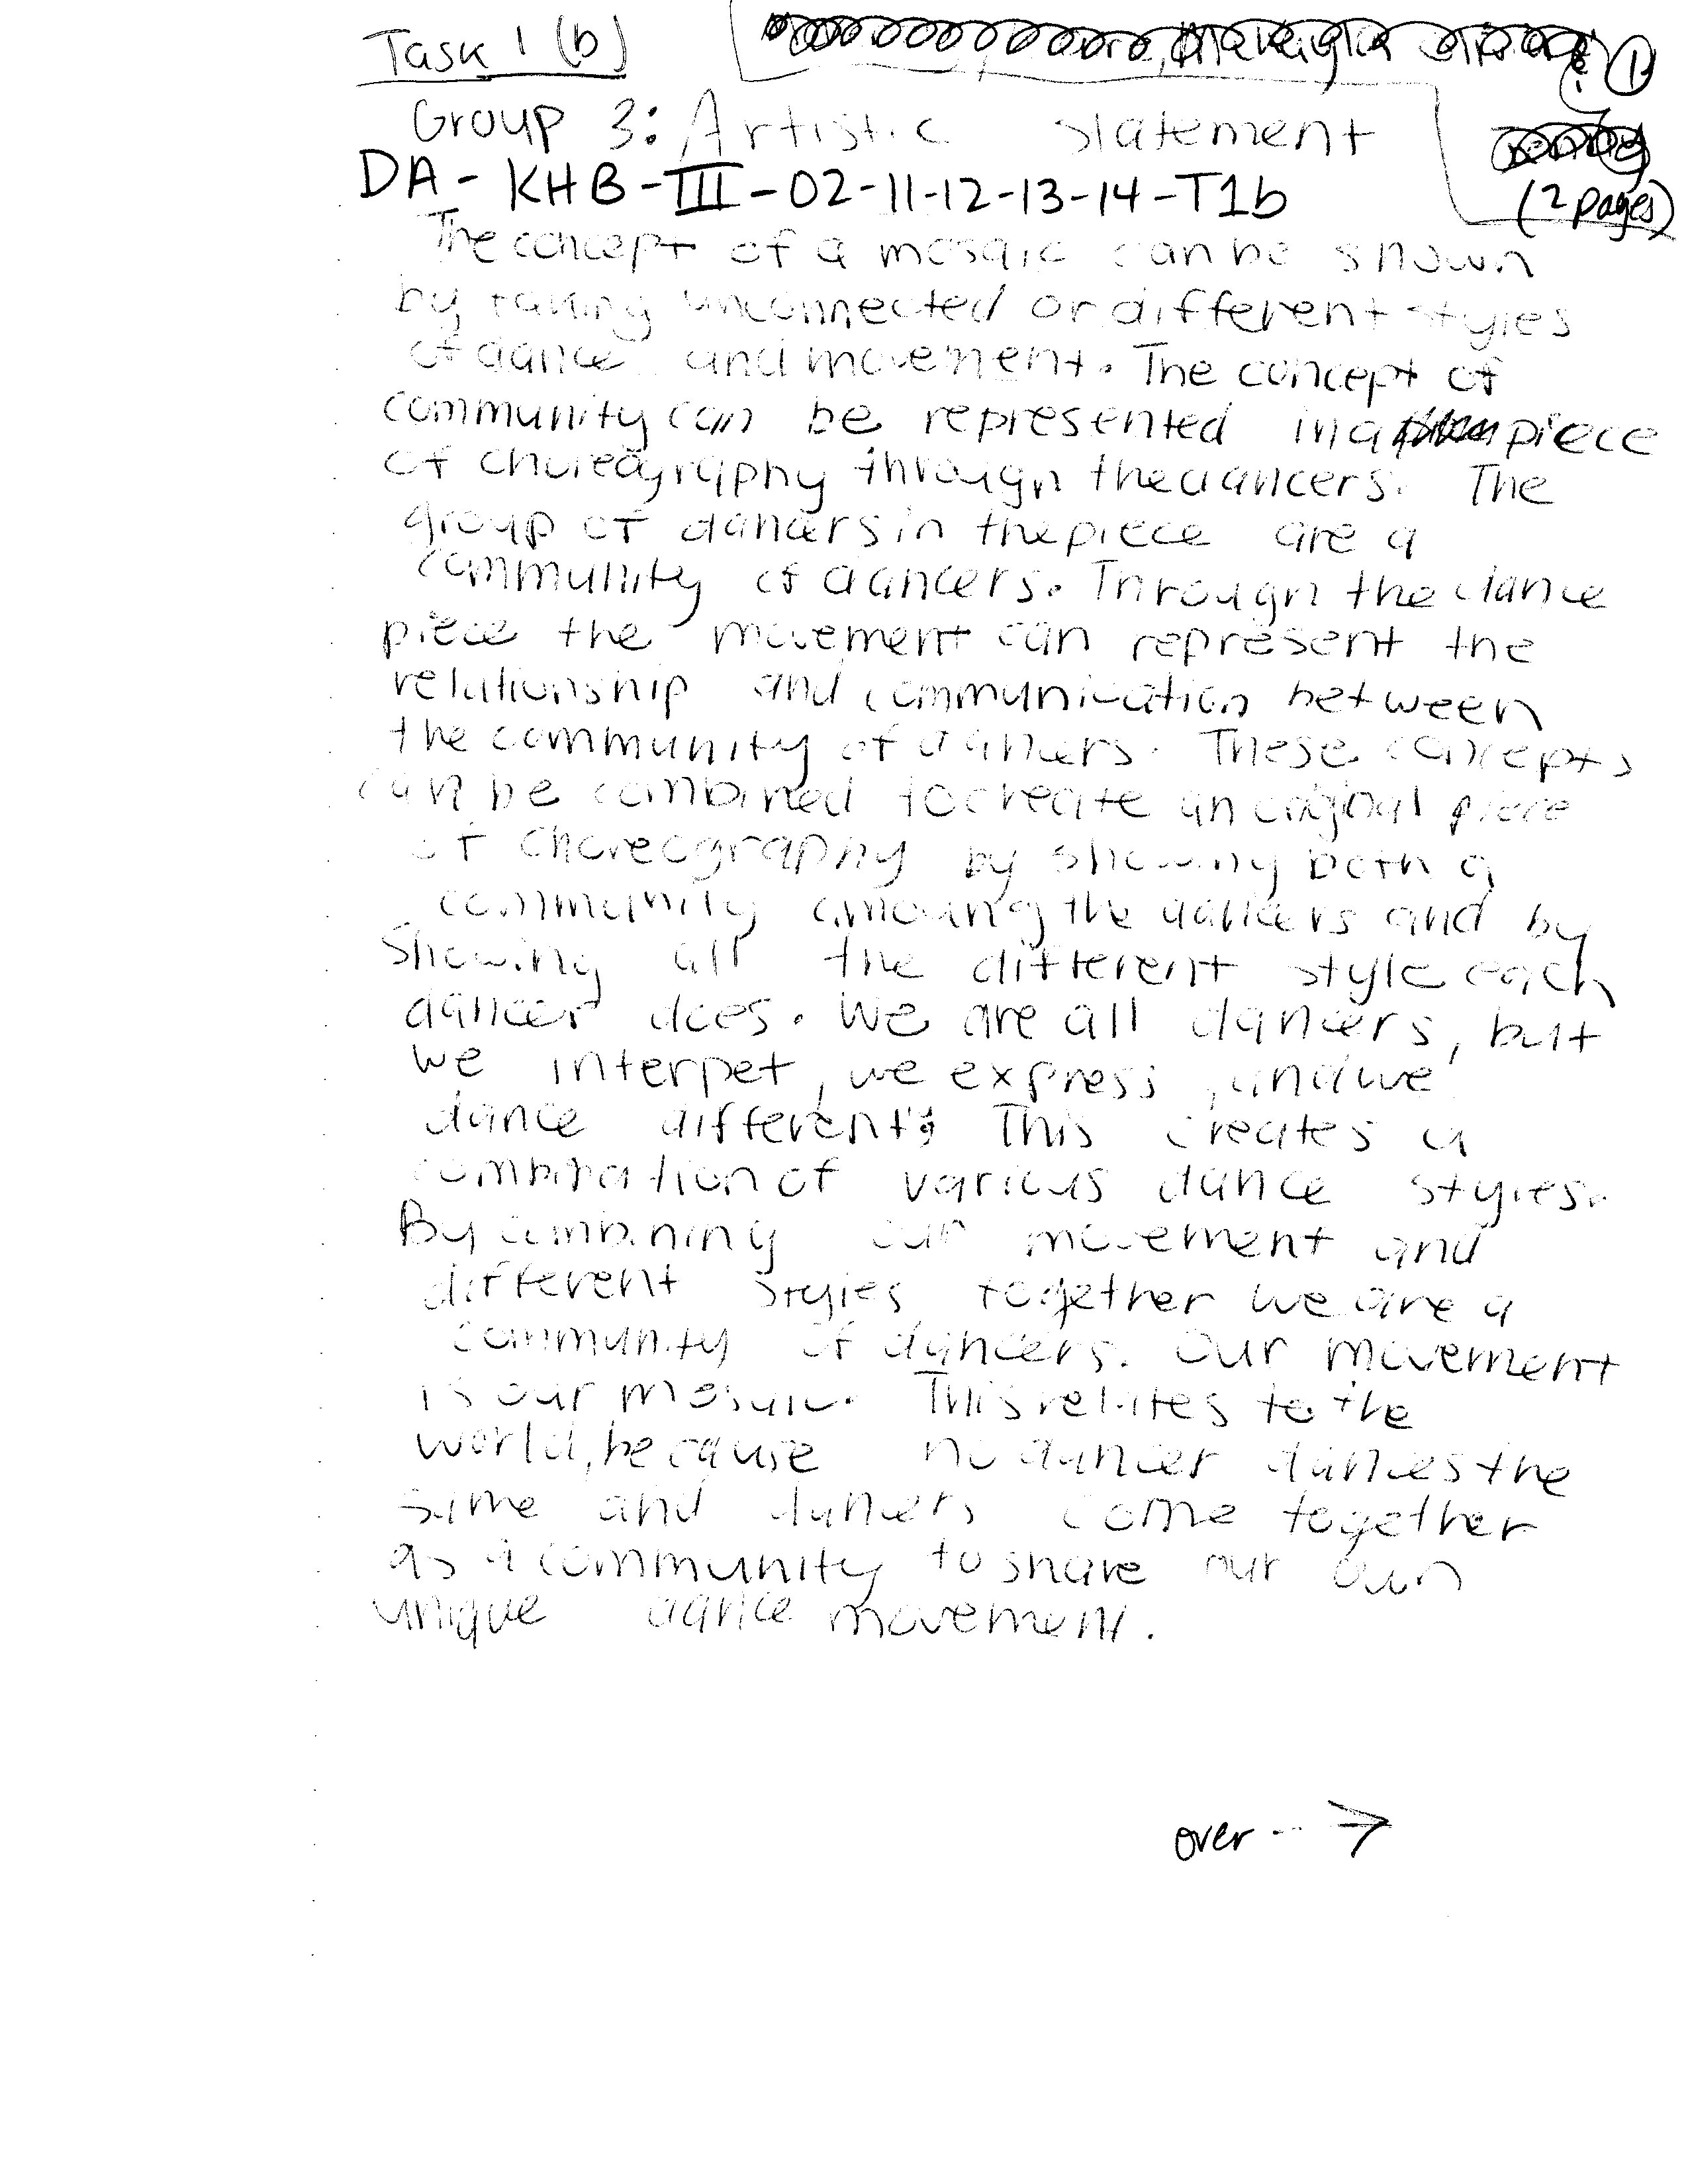 Task 1 (b)
①
Group 3: Artistic statement
(2 pages)
DA-KHB-III-02-11-12-13-14-T1b
The concept of a mosaic can be shown
by taking unconnected or different styles
of dance and movement. The concept of
community can be represented in a piece
of choreography through the dancers. The
group of dancers in the piece are a
community of dancers. Through the dance
piece the movement can represent the
relationship and communication between
the community of dancers. These concepts
can be combined to create an original piece
of choreography by showing both a
community amoung the dancers and by
showing all the different style each
dancer does. We are all dancers, but
we interpet, we express, and we
dance different. This creates a
combination of various dance styles.
By combining our movement and
different styles together we are a
community of dancers. Our movement
is our mosaic. This relates to the
world, because no dancer dances the
same and dancers come together
as a community to share our own
unique dance movement.
over -->